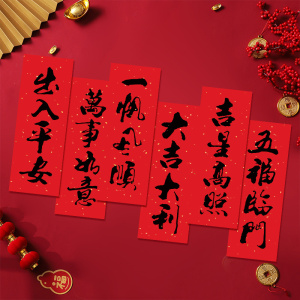 出入平安
萬事如意
一帆風順
大吉大利
吉星高照
五福臨門
福